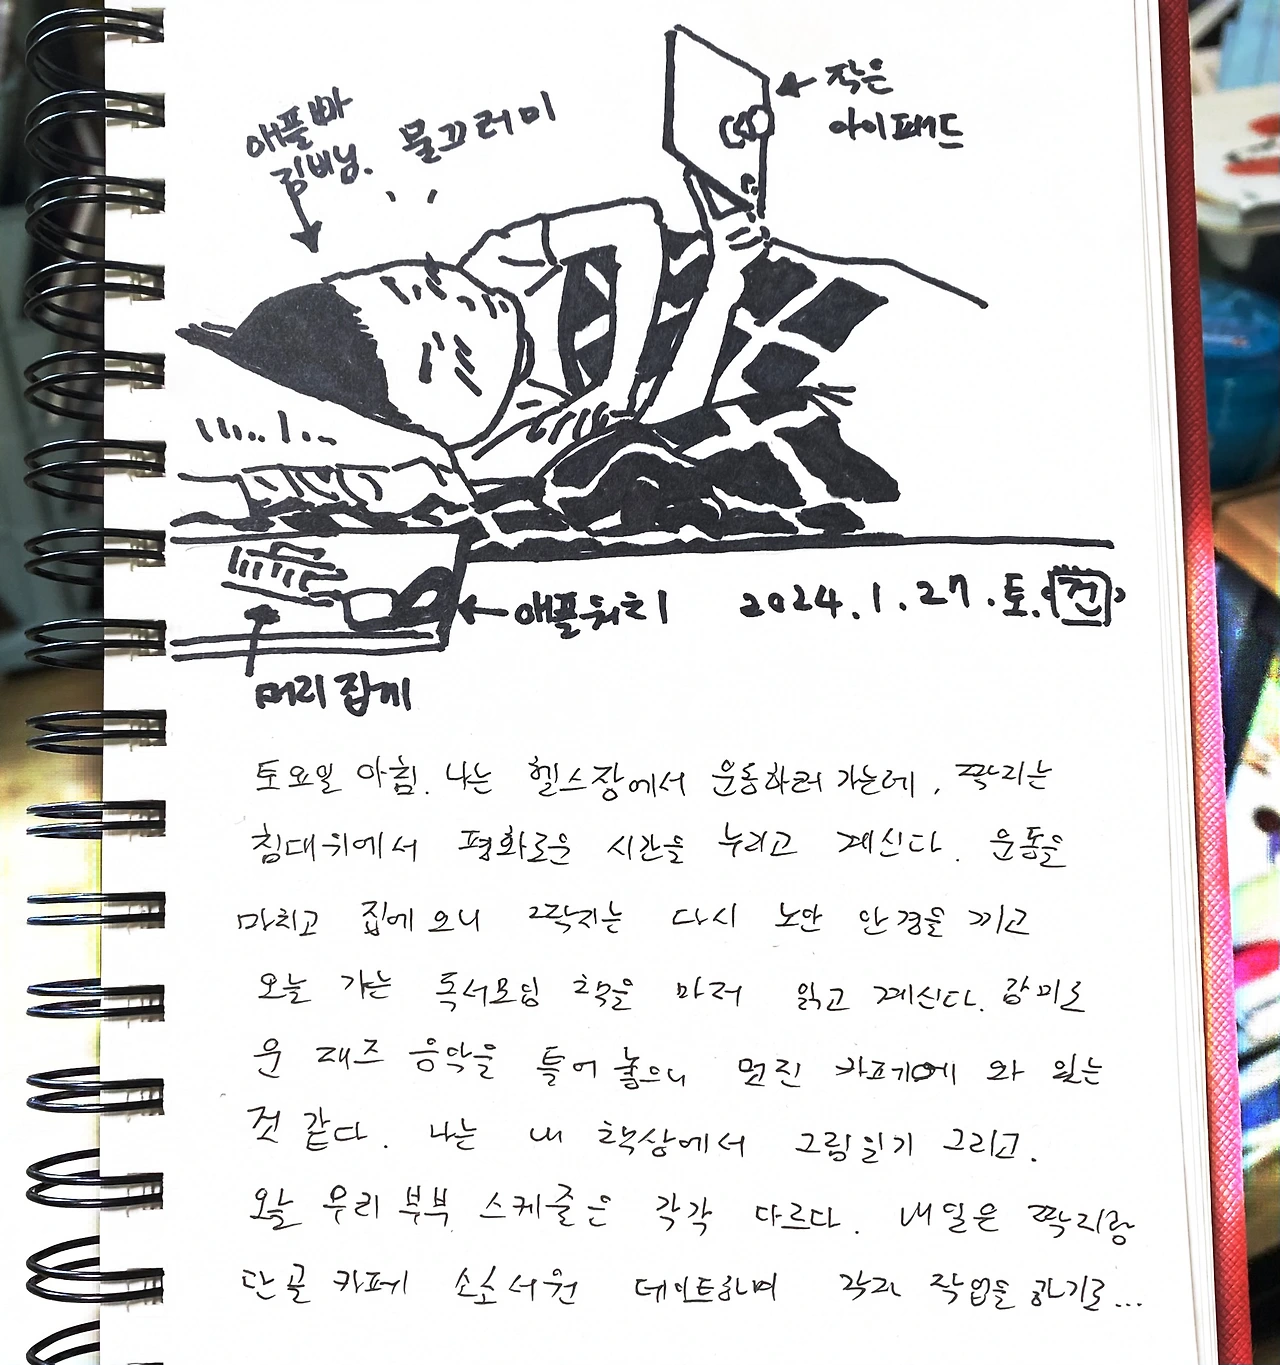 애플빠
김비님.
물끄러미
작은
아이패드
애플워치
2024.1.27.토.건
머리집게
토요일 아침. 나는 헬스장에서 운동하러 가는데, 짝지는
침대위에서 평화로운 시간을 누리고 계신다. 운동을
마치고 집에 오니 짝지는 다시 노안 안경을 끼고
오늘 가는 독서모임 책을 마저 읽고 계신다. 감미로
운 재즈 음악을 틀어 놓으니 멋진 카페에 와 있는
것 같다. 나는 내 책상에서 그림일기 그리고.
오늘 우리 부부 스케줄은 각각 다르다. 내일은 짝지랑
단골 카페 소소서원 데이트하며 각자 작업을 하기로...